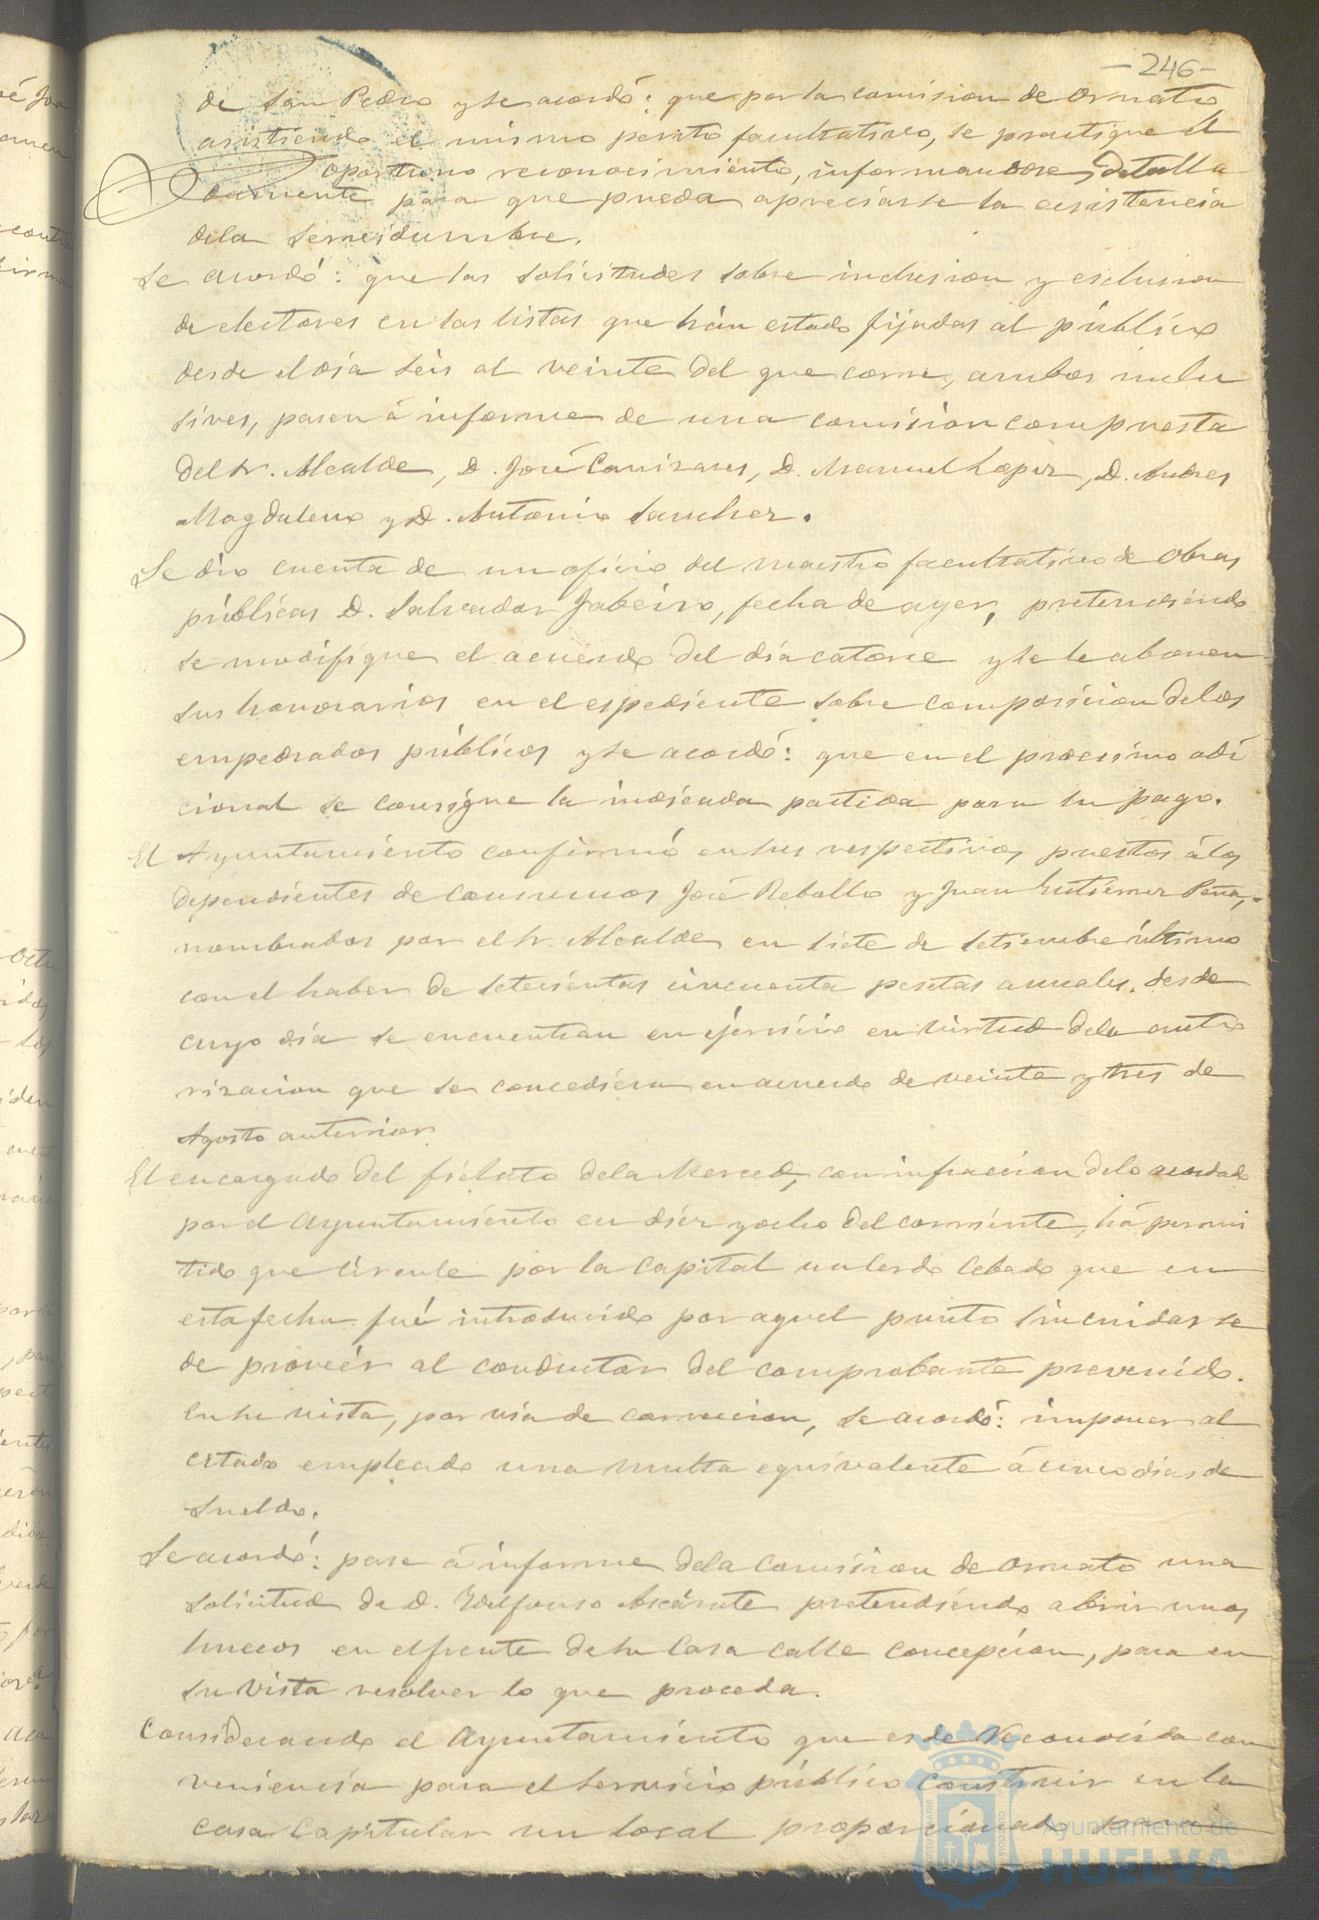 -246-
de San Pedro y se acordó: que por la comision de Ornato,
asistiendo el mismo perito facultativo, se practique el
oportuno reconocimiento, informandose detalla
damente para que pueda apreciarse la ecsistencia
dela servidumbre.
Se acordó: que las solicitudes sobre inclusion y esclusion
de electores en las listas que hán estado fijadas al público
desde el dia seis al veinte del que corre, ambos inclu
sives, pasen á informe de una comision compuesta
del Sr. Alcalde, D. José Cañizares, D. Manuel Lopez, D. Andres
Magdaleno y D. Antonio Sanchez.
Se dio cuenta de un oficio del maestro facultativo de obras
públicas D. Salvador Jabeiro, fecha de ayer, pretendiendo
se modifique el acuerdo del dia catorce y se le abonen
sus honorarios en el espediente sobre composicion delos
empedrados públicos y se acordó: que en el procsimo adi
cional se consigne la indicada partida para su pago.
El Ayuntamiento confirmó en sus respectivos puestos á los
dependientes de consumos José Rebollo y Juan Gutierrez Peña,
nombrados por el Sr. Alcalde en siete de Setiembre último
con el haber de setecientas cincuenta pesetas anuales, desde
cuyo dia se encuentran en ejercicio en virtud dela auto
rizacion que se concediera en acuerdo de veinte y tres de
Agosto anterior.
El encargado del fielato dela Merced, con infraccion delo acordado
por el Ayuntamiento en diez y ocho del corriente, há permi
tido que circule por la Capital un cerdo cebado que en
esta fecha fué introducido por aquel punto sin cuidarse
de proveér al conductor del comprobante prevenido.
En su vista, por via de correccion, se acordó: imponer al
citado empleado una multa equivalente á cinco dias de
sueldo.
Se acordó: pase á informe dela Comision de Ornato una
solicitud de D. Ildefonso Ascárate pretendiendo abrir unos
huecos en el frente de su Casa calle Concepcion, para en
su vista resolver lo que proceda.
Considerando el Ayuntamiento que es de reconocida con
veniencia para el servicio público construir en la
casa Capitular un local proporcionado
Ayuntamiento de
HUELVA